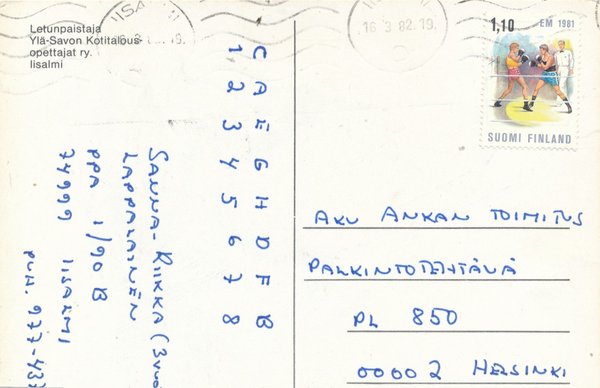 Letunpaistaja
Ylä-Savon Kotitalous-
opettajat ry.
Iisalmi
16.3.82.19.
1,10 EM 1981
SUOMI FINLAND
C A E G H D F B
1 2 3 4 5 6 7 8
SANNA-RIIKKA (3vuo
LAPPALAINEN
PPA 1/90 B
74999 IISALMI
PUH. 977-43
AKU ANKAN TOIMITUS
PALKINTOTEHTÄVÄ
PL 850
00002 HELSINKI